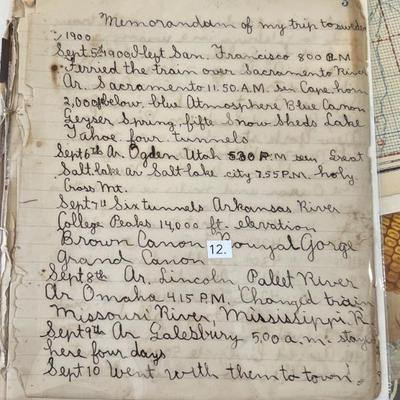 Memorandam of my trip to sweden
1900
Sept 5th 1900 I left San. Francisco 8 00 A.M
Ferried the train over Sacramento River
Ar. Sacramento 11.50 A.M. seen Cape horn
2,000 ft below. blue Atmosphere Blue Canon
Geyser Spring, fifte Snow Sheds Lake
Tahoe four tunnels
Sept 6th Ar. Ogden Utah 530 P.M seen Great
Salt lake ar Salt lake city 755 P.M. holy
Cross Mt.
Sept 7th Six tunnels Arkansas River
College Peaks 14,000 ft. elevation
Brown Canon Rouyal Gorge
Grand Canon
12.
Sept 8th Ar. Lincoln Palet River
Ar Omaha 4 15 P.M. Changed train
Missouri River, Mississippi R.
Sept 9th Ar Galesbury 5,00 a.m. stay
here four days
Sept 10 went with them to town.